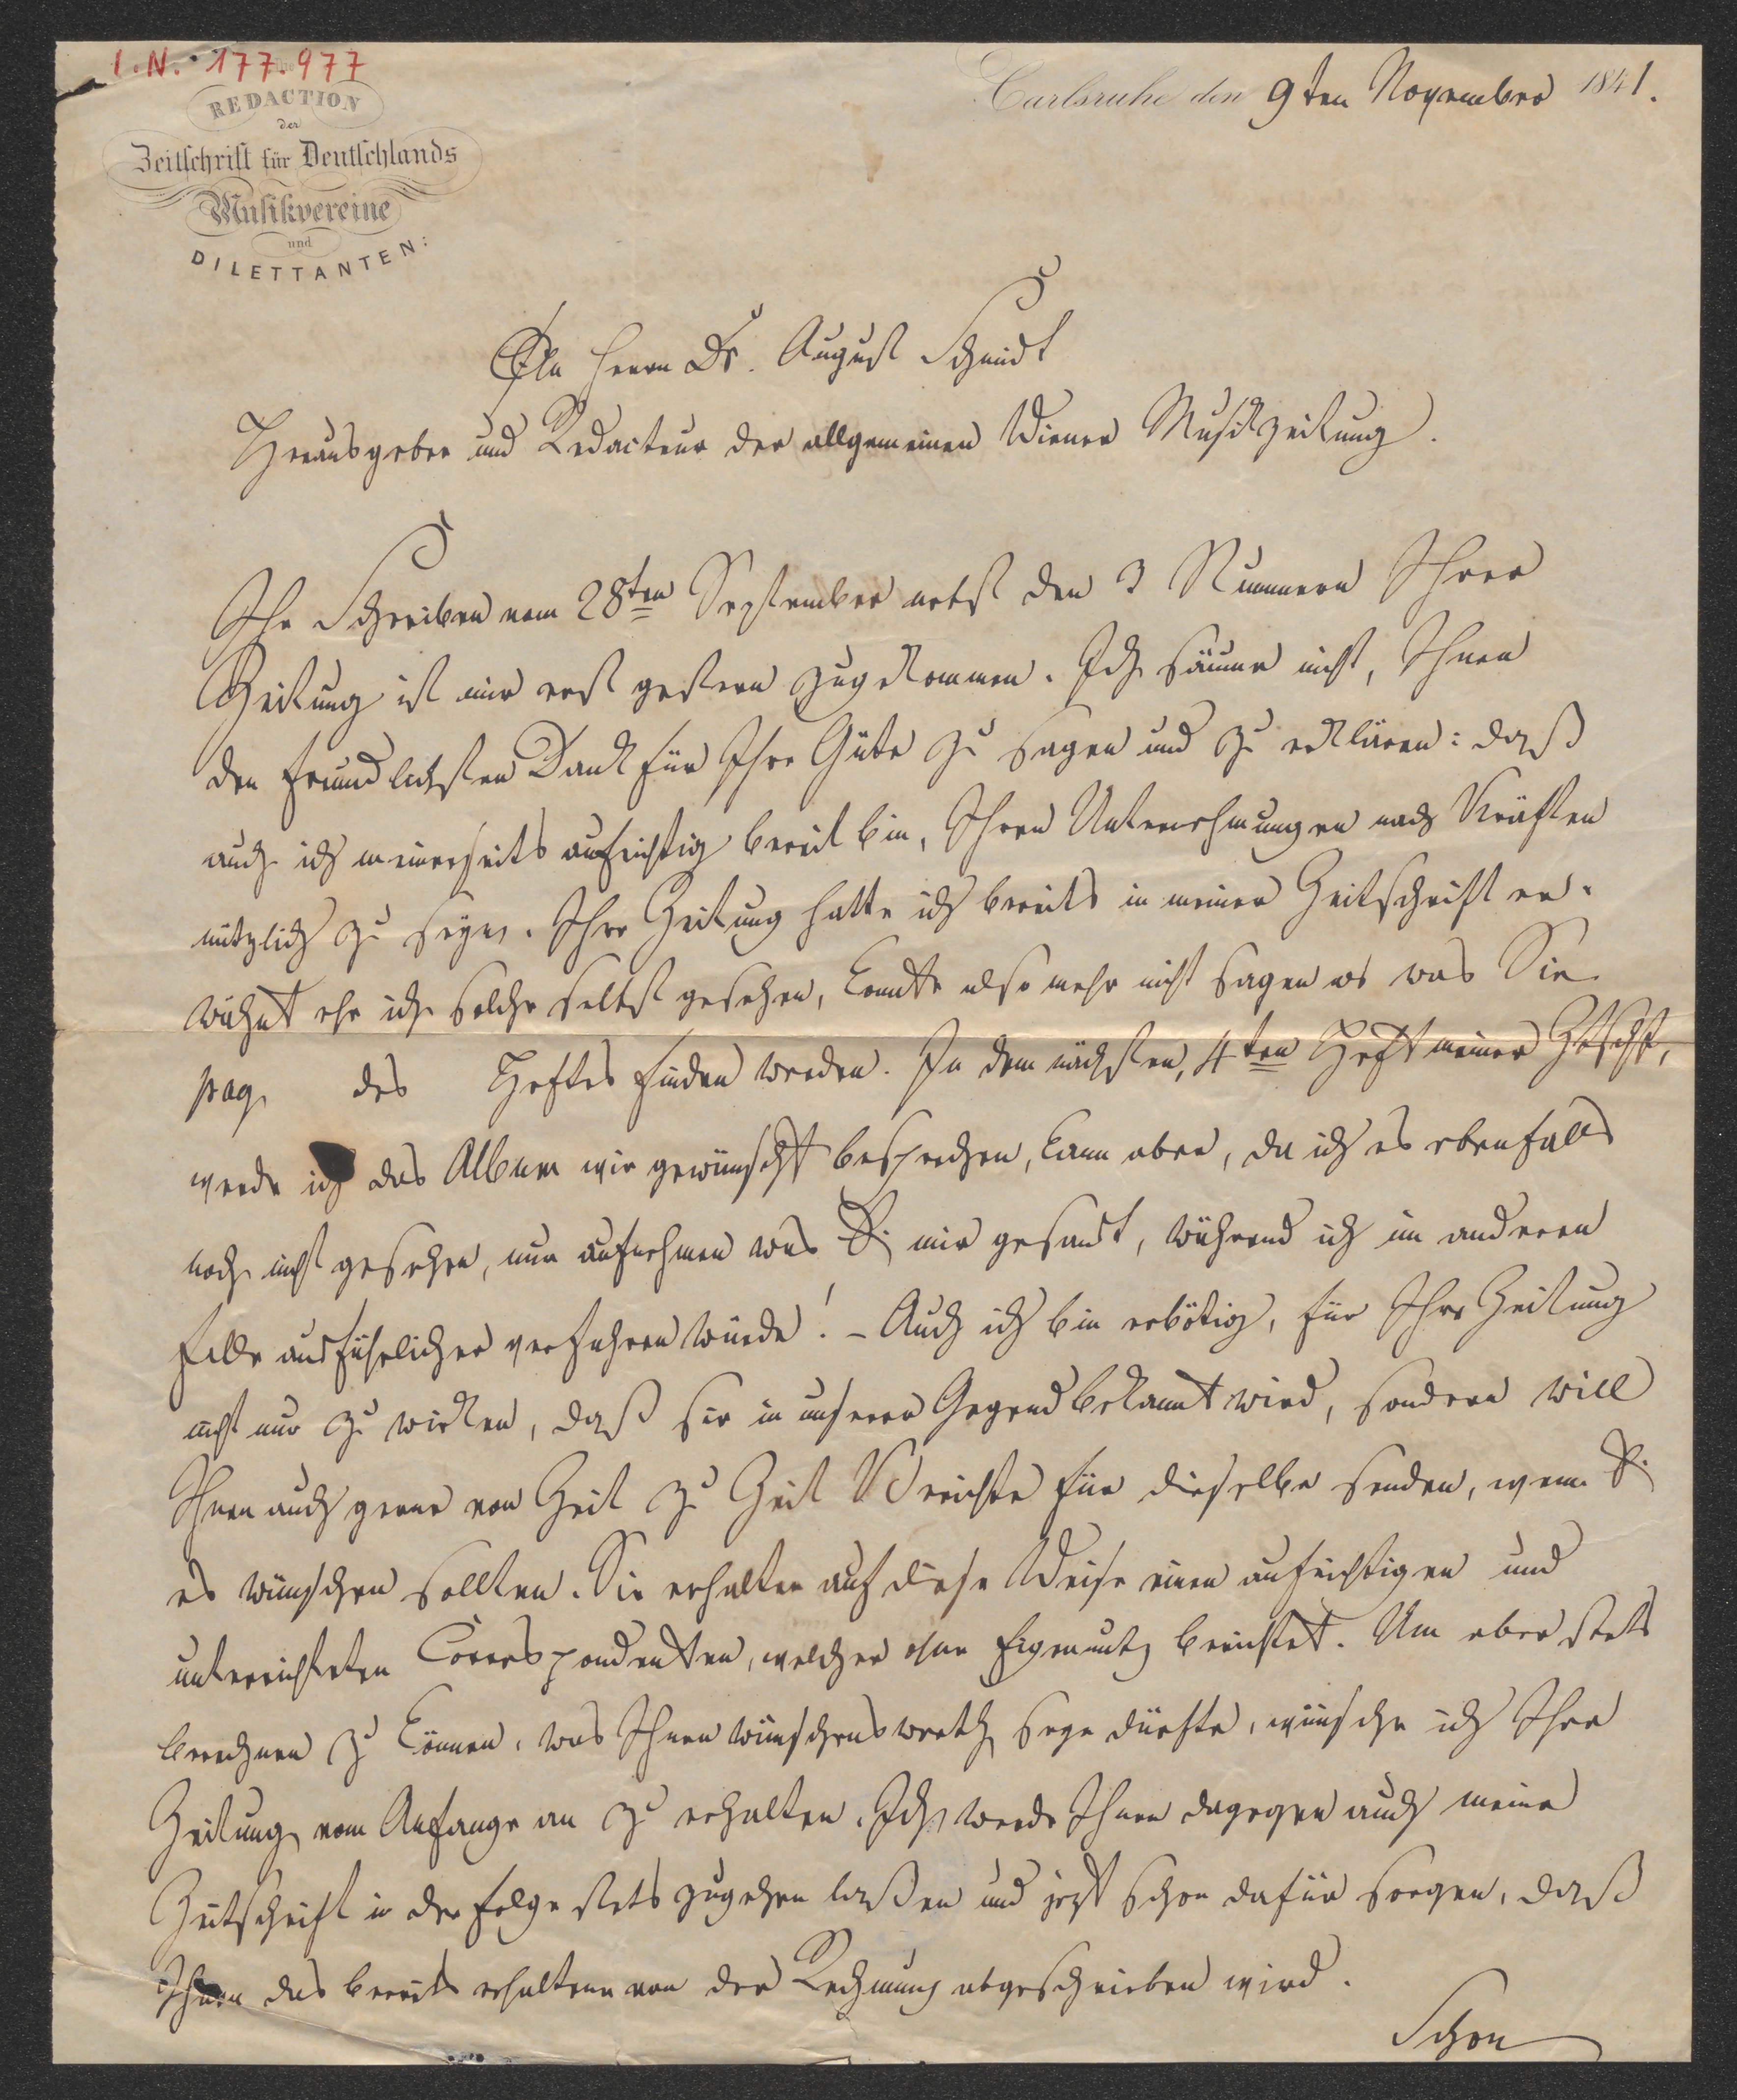 I.N. 177.977
REDACTION
der
Zeitschrift für Deutschlands
Musikvereine
und
DILETTANTEN:
Carlsruhe den 9ten November 1841.
An Herrn Dr. August Schmidt
Herausgeber und Redacteur der allgemeinen Wiener Musikzeitung.
Ihr Schreiben vom 28ten September nebst den 3 Nummern Ihrer
Zeitung ist mir erst gestern zugekommen. Ich säume nicht, Ihnen
den freundlichsten Dank für Ihre Güte zu sagen und zu erklären: daß
auch ich meinerseits aufrichtig bereit bin, Ihren Unternehmungen nach Kräften
nützlich zu seyn. Ihre Zeitung hatte ich bereits in meiner Zeitschrift er-
wähnt ehe ich solche selbst gesehen, konnte also mehr nicht sagen als was Sie
pag. des Heftes finden werden. In dem nächsten, 4ten Heft meiner Ztschft,
werde ich das Album wie gewünscht besprechen, kann aber, da ich es ebenfalls
noch nicht gesehen, nur aufnehmen was Si mir gesandt, während ich im anderen
Falle ausführlicher verfahren würde! - Auch ich bin erbötig, für Ihre Zeitung
nicht nur zu wirken, daß sie in unserer Gegend bekannt wird, sondern will
Ihnen auch gerne von Zeit zu Zeit Berichte für dieselbe senden, wenn Si
es wünschen sollten. Sie erhalten auf diese Weise einen aufrichtigen und
unterrichteten Correspondenten, welcher ohne Eigennutz berichtet. Um aber stets
berechnen zu können, was Ihnen wünschenswerth seyn dürfte, wünsche ich Ihre
Zeitung vom Anfange an zu erhalten. Ich werde Ihnen dagegen auch meine
Zeitschrift in der Folge stets zugehen laßen und jezt schon dafür sorgen, daß
Ihnen das bereits erhaltene von der Rechnung abgeschrieben wird.
Schon